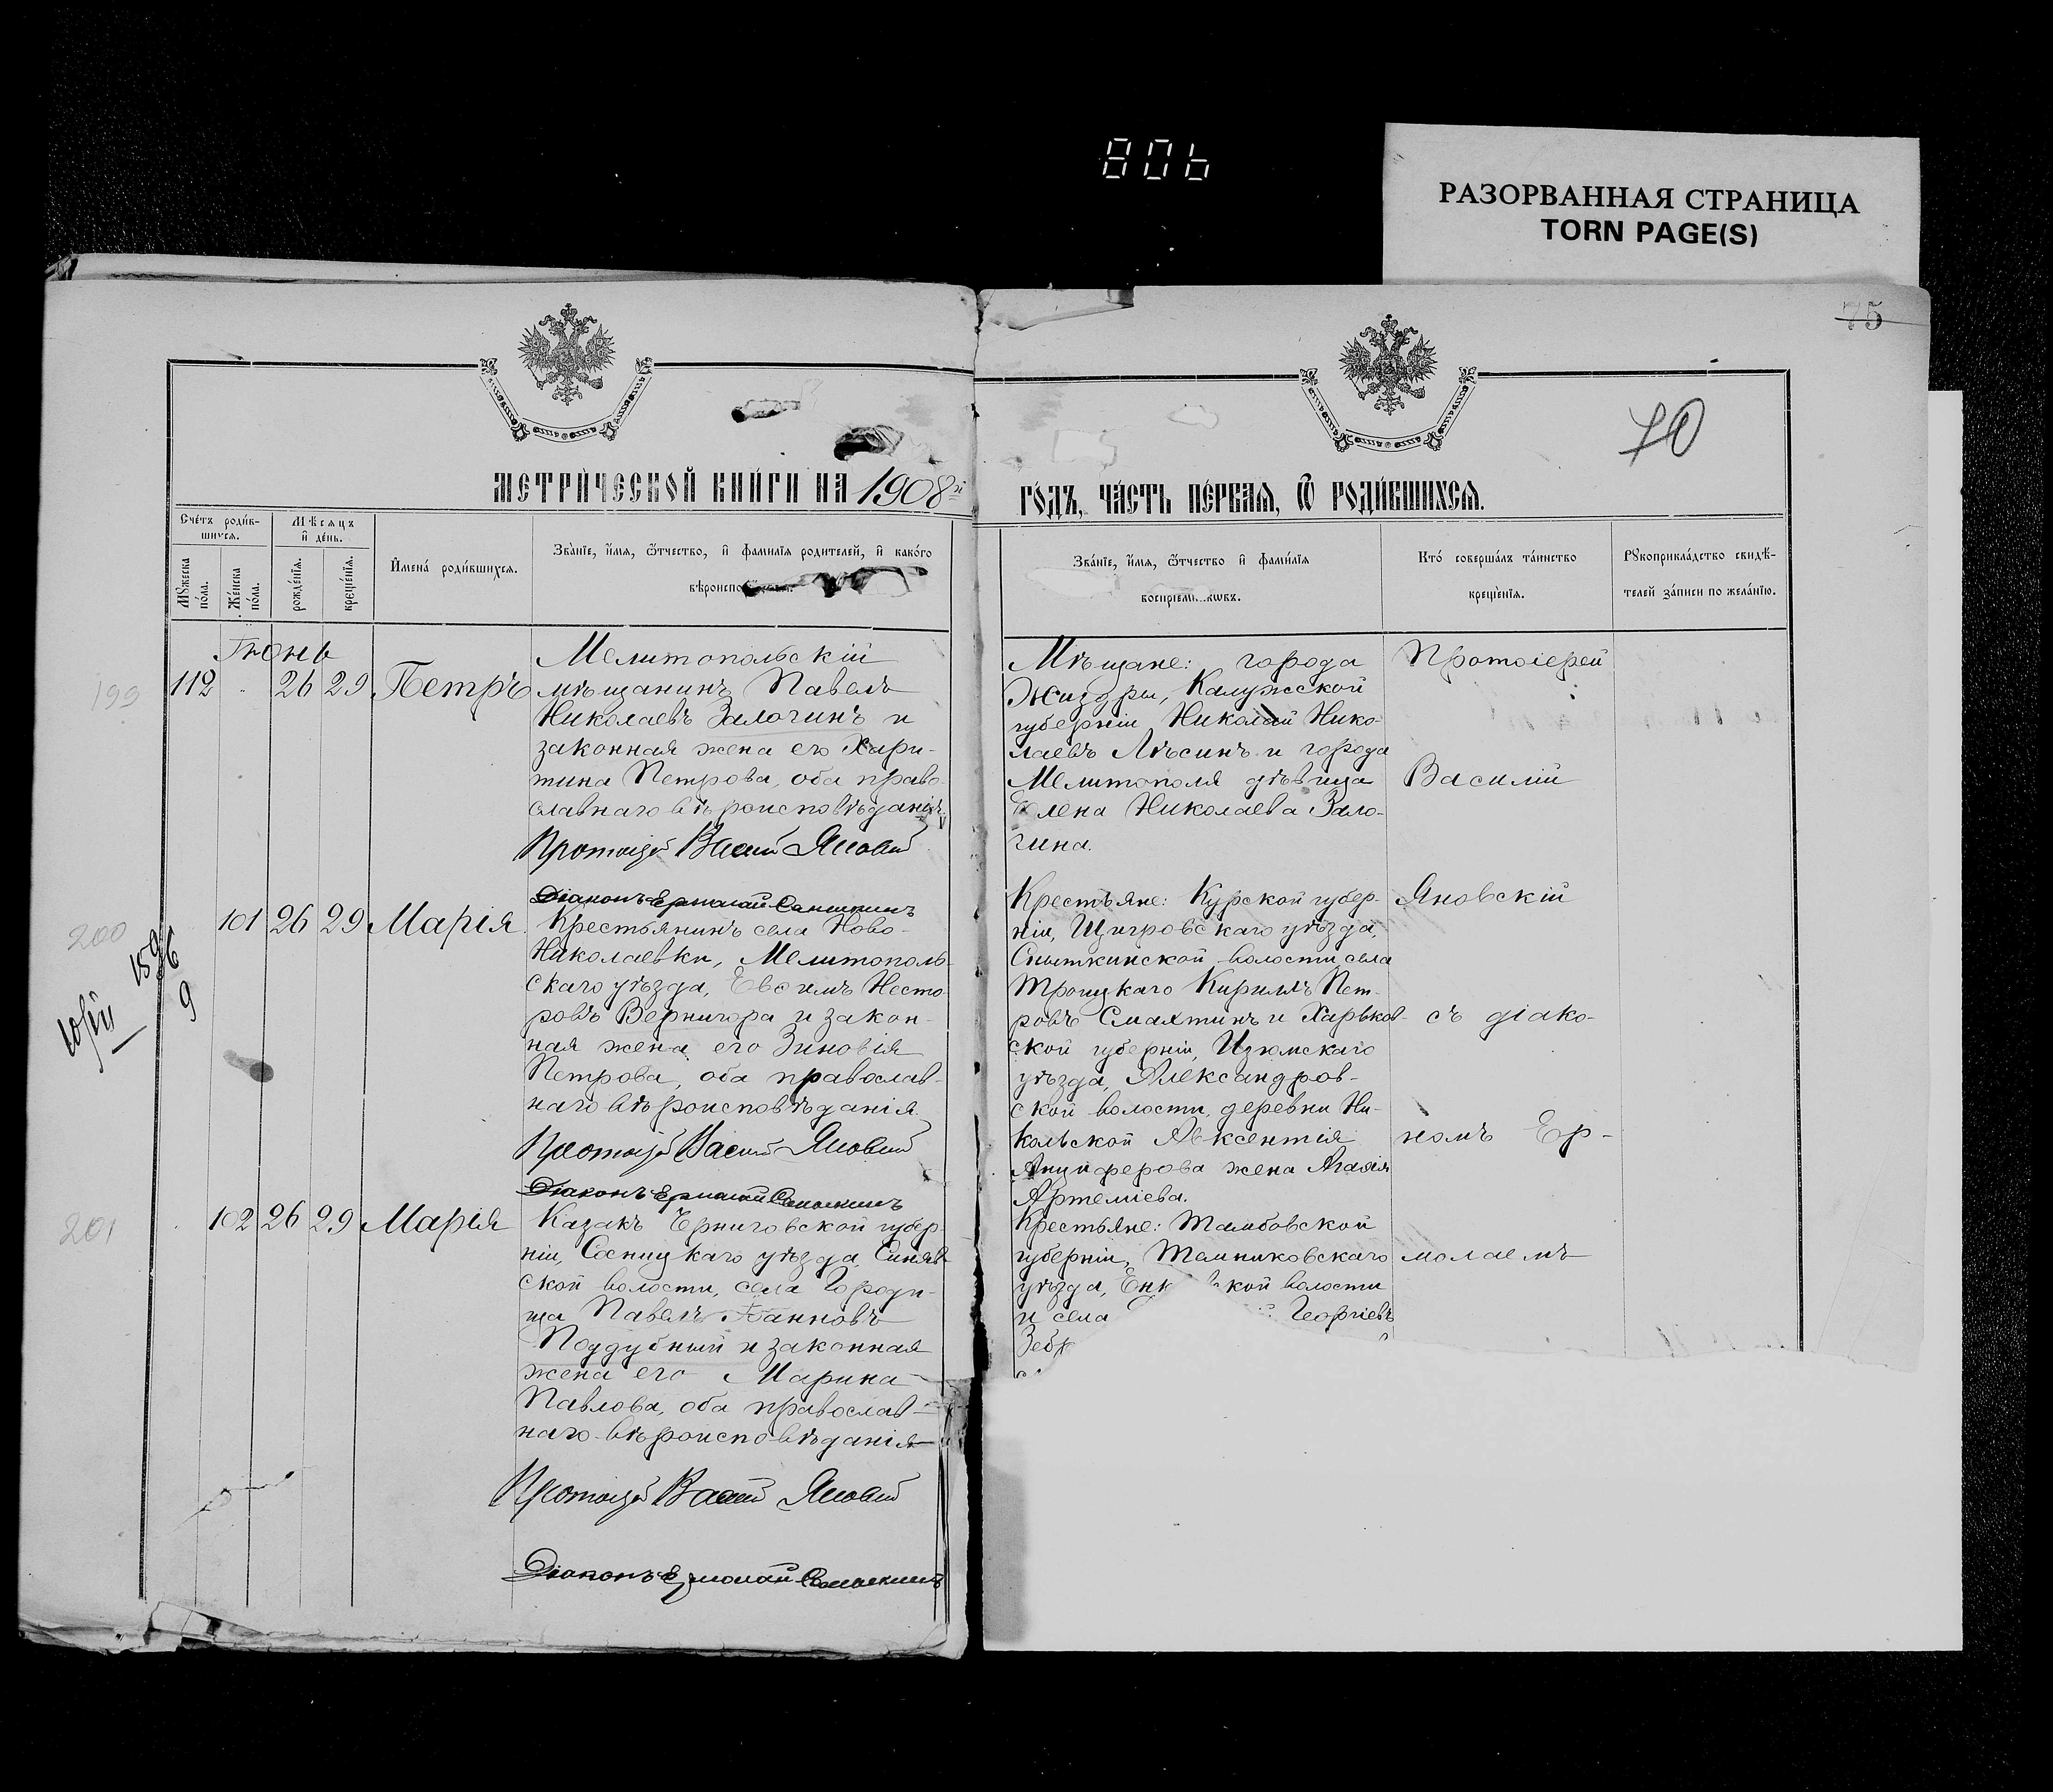 806
РАЗОРВАННАЯ СТРАНИЦА
TORN PAGE(S)
75
70
МЕТРИЧЕСКОЙ КНИГИ НА 1908й
ГОДЪ, ЧАСТЬ ПЕРВАЯ, Ѿ РОДИВШИХСЯ.
Счетъ родив-
шихся.
Мѣсяцъ
и день.
Мужеска
пола.
Женска
пола.
рожденія.
крещенія.
Имена родившихся.
Званіе, имя, ѿчество, и фамилія родителей, и какого
вѣроиспо
Званіе, имя, ѿчество и фамилія
воспріем...ковъ.
Кто совершалъ таинство
крещенія.
Рукоприкладство свидѣ-
телей записи по желанію.
Іюнь
199
112 26 29 Петръ
Мелитопольскій
мѣщанинъ Павелъ
Николаевъ Залогинъ и
законная жена его Хари-
тина Петрова, оба право-
славнаго вѣроисповѣданія.
Протоіерей Василій Яновскій
Діаконъ Ермолай
Мѣщане: города
Жиздры, Калужской
губерніи, Николай Нико-
лаевъ Лѣсинъ и города
Мелитополя дѣвица
Елена Николаева Зало-
гина.
Протоіерей
Василій
Яновскій
съ діако-
номъ Ер-
молаемъ
200
1596
9
101 26 29 Марія
Крестьянинъ села Ново-
Николаевки, Мелитополь-
скаго уѣзда, Евѳимъ Несто-
ровъ Вернигора и закон-
ная жена его Зиновія
Петрова, оба православ-
наго вѣроисповѣданія
Протоіерей Василій Яновскій
Діаконъ Ермолай
Крестьяне: Курской губер-
ніи, Щигровскаго уѣзда,
волости, села
Троицкаго Кириллъ Пет-
ровъ Смахтинъ и Харьков-
ской губерніи, Изюмскаго
уѣзда, Александров-
ской волости, деревни Ни-
кольской Авксентія
Анциферова жена Агаѳія
Артеміева.
201
102 26 29 Марія
Казакъ Черниговской губер-
ніи, Сосницкаго уѣзда, Синяв-
ской волости, села Городи-
ща Павелъ Іоанновъ
Поддубный и законная
жена его Марина
Павлова, оба православ-
наго вѣроисповѣданія
Протоіерей Василій Яновскій
Діаконъ Ермолай
Крестьяне: Тамбовской
губерніи, Темниковскаго
уѣзда, кой волости
и села Георгіевъ